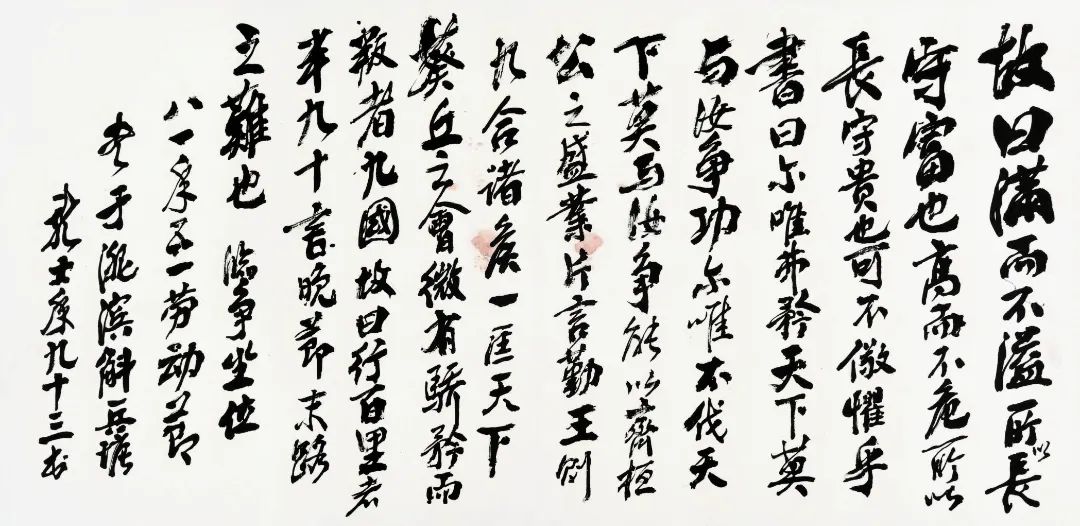 故曰滿而不溢所以長
守富也高而不危所以
長守貴也可不儆懼乎
書曰尔唯弗矜天下莫
与汝争功尔唯不伐天
下莫与汝争能以齊桓
公之盛業片言勤王則
九合诸侯一匡天下
葵丘之會微有驕矜而
叛者九國故曰行百里者
半九十言晚節末路
之難也 臨争坐位
八一年五一劳动节
书于洮滨斛兵塘
九十三书